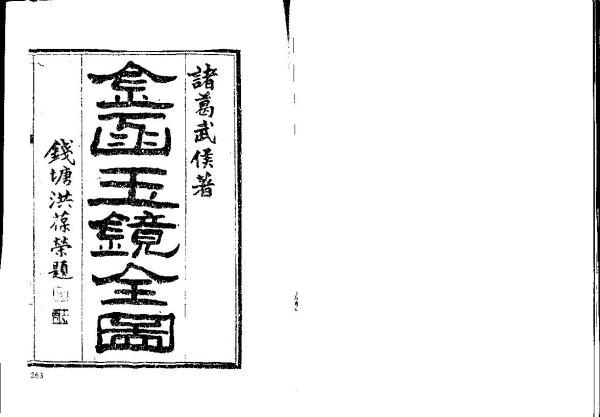 諸葛武侯著
金函玉鏡全圖
錢塘洪葆榮題
263